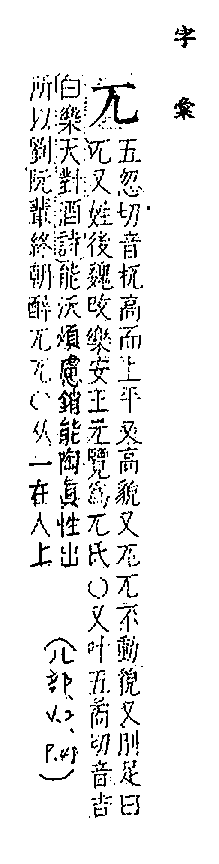 字彙
兀
五忽切音杌高而上平又高貌又兀兀不動貌又刖足曰
兀又姓後魏改樂安王元覽爲兀氏○又叶五喬切音吉
白樂天對酒詩能沃煩慮銷能陶眞性出
所以劉阮輩終朝醉兀兀○从一在人上
(儿部、V.2、P.48)